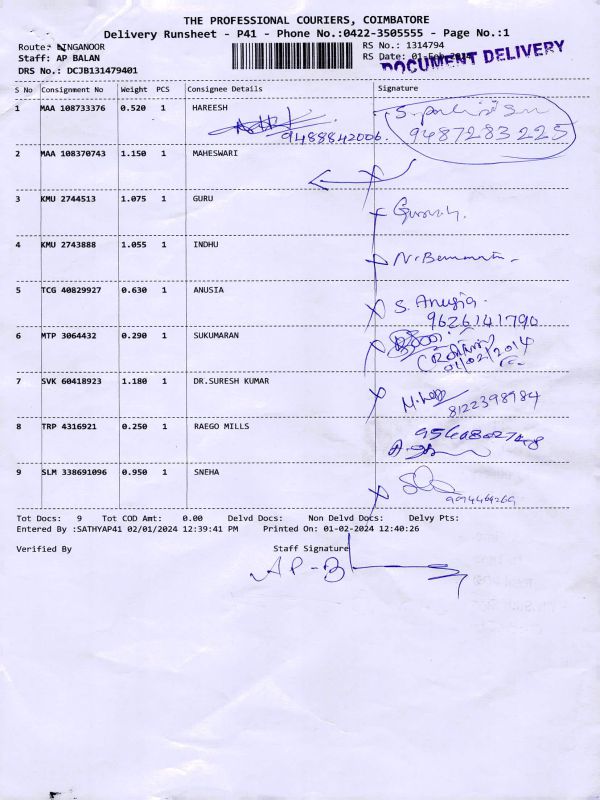 THE PROFESSIONAL COURIERS, COIMBATORE
Delivery Runsheet - P41 - Phone No.:0422-3505555 - Page No.:1
Route: LINGANOOR RS No.: 1314794
Staff: AP BALAN RS Date: 01-Feb-2024
DOCUMENT DELIVERY
DRS No.: DCJB131479401
S No Consignment No Weight PCS Consignee Details Signature
1 MAA 108733376 0.520 1 HAREESH
9488842006. 9487283225
2 MAA 108370743 1.150 1 MAHESWARI
3 KMU 2744513 1.075 1 GURU
4 KMU 2743888 1.055 1 INDHU
5 TCG 40829927 0.630 1 ANUSIA S. Anusia.
9626141790
6 MTP 3064432 0.290 1 SUKUMARAN
01/02/2014
7 SVK 60418923 1.180 1 DR.SURESH KUMAR
8122398984
8 TRP 4316921 0.250 1 RAEGO MILLS
9 SLM 338691096 0.950 1 SNEHA
Tot Docs: 9 Tot COD Amt: 0.00 Delvd Docs: Non Delvd Docs: Delvy Pts:
Entered By :SATHYAP41 02/01/2024 12:39:41 PM Printed On: 01-02-2024 12:40:26
Verified By Staff Signature
AP-B